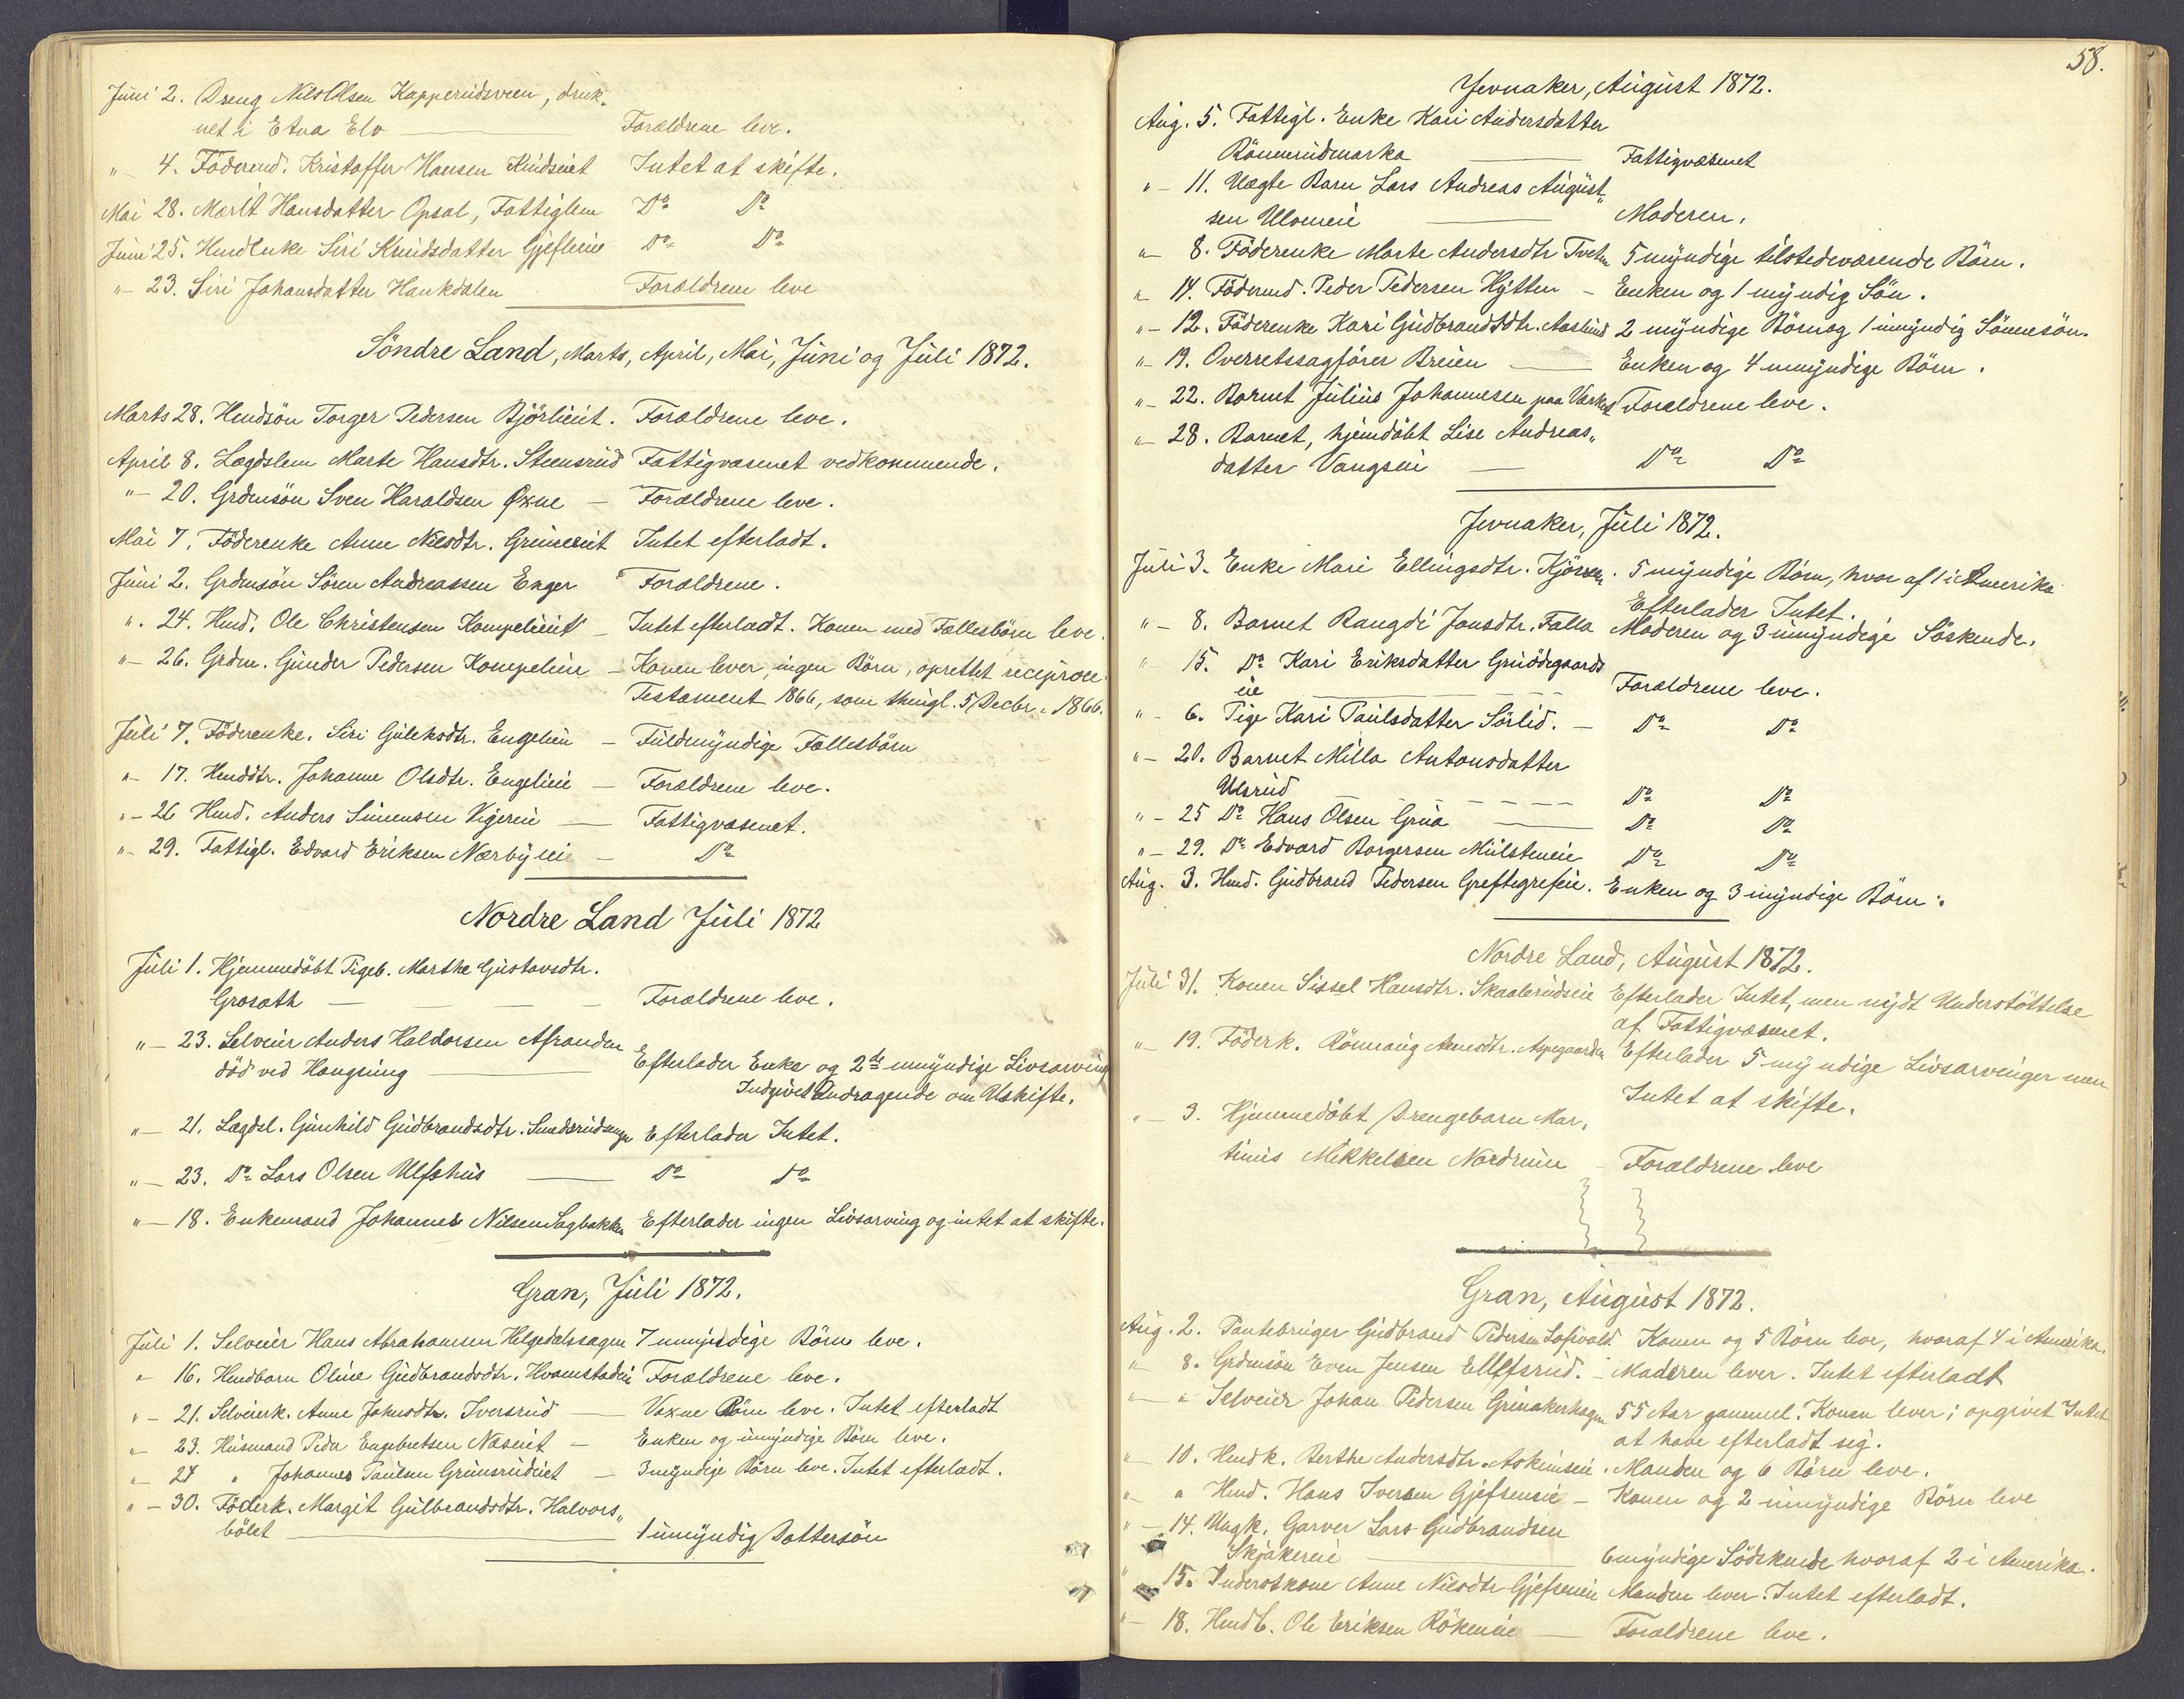 Juni 2. Dreng Nils Olsen Kapperudsveen, druk-
net i Etna Elv — Forældrene leve.
"- 4. Födermd. Kristoffer Hansen Kindseiet Intet at skifte.
Mai 28. Marit Hansdatter Opsal, Fattiglem Do Do
Juni 25. Hmdenke Siri Knudsdatter Gjefleeie Do Do
"- 23. Siri Johansdatter Haukdalen Forældrene leve
Söndre Land, Marts, April, Mai, Juni og Juli 1872.
Marts 28. Hmdsön Torger Pedersen Björlieiet. Forældrene leve.
April 8. Lægdslem Marte Hansdtr. Steensrud Fattigvæsenet vedkommende.
"- 20. Grdmsön Sven Haraldsen Øxne — Forældrene leve.
Mai 7. Föderenke Anne Nilsdtr. Grimereiet Intet efterladt.
Juni 2. Grdmsön Sören Andreassen Enger Forældrene.
". 24. Hmd. Ole Christensen Kompelieiet — Intet efterladt. Konen med Fællesbörn leve.
"- 26. Grdm. Gunder Pedersen Kompelien — Konen lever, ingen Börn, oprettet reciproce
Testament 1866, som thingl. 5 Decbr. 1866.
Juli 7. Föderenke. Siri Guleksdtr. Engelien — Fuldmyndige Fællesbörn
"- 17. Hmddtr. Johanne Olsdtr. Engelieie — Forældrene leve.
"- 26 Hmd. Anders Simensen Vigereie — Fattigvæsenet.
"- 29. Fattigl. Edvard Eriksen Nærbyeie — Do
Nordre Land Juli 1872
Juli 1. Hjemmedöbt Pigeb. Marthe Gustavsdtr.
Grosæth — Forældrene leve.
"- 23. Selveier Anders Haldorsen Afranden
död ved Hængning — Efterlader Enke og 2de umyndige Livsarving
Indgivet Andragende om Uskifte.
"- 21. Lægdsl. Gunhild Gudbrandsdtr. Smedsrudengen Efterlader Intet.
"- 23. Do Lars Olsen Ulfshus — Do Do
"- 18. Enkemand Johannes Nilsen Sagbakken Efterlader ingen Livsarving og intet at skifte.
Gran, Juli 1872.
Juli 1. Selveier Hans Abrahamsen Helgedalssagen 7 umyndige Börn leve.
"- 16. Hmdbarn Oline Gudbrandsdtr. Hvamstadeie Forældrene leve.
"- 21. Selveierk. Anne Johnsdtr. Iversrud — Voxne Börn leve. Intet efterladt
"- 23. Husmand Peder Engebretsen Næseiet — Enken og umyndige Börn leve.
"- 24 " Johannes Paulsen Grimsrudeiet — 3 myndige Börn leve. Intet efterladt.
"- 30. Föderk. Margit Gulbrandsdtr. Halvors-
bölet — 1 umyndig Dattersön
58.
Jevnaker, August 1872.
Aug. 5. Fattigl. Enke Kari Andersdatter
Rönnerudmarka — Fattigvæsenet
"- 11. Uægte Barn Lars Andreas August-
sen Uloeneie — Moderen.
"- 8. Föderenke Marte Andersdtr Tveten 5 myndige tilstedeværende Börn.
"- 14. Födermd. Peder Pedersen Hytten — Enken og 1 myndig Sön.
"- 12. Föderenke Kari Gudbrandsdtr. Aaslund 2 myndige Börn og 1 umyndig Sönnesön.
"- 19. Overretssagförer Breien — Enken og 4 umyndige Börn.
"- 22. Barnet Julius Johannesen paa Værket Forældrene leve.
"- 28. Barnet, hjemdöbt Lise Andreas-
datter Vangseie — Do Do
Jevnaker, Juli 1872.
Juli 3. Enke Mari Ellingsdtr. Kjörven. 5 myndige Börn, hvor af 1 i Amerika
Efterlader Intet.
"- 8. Barnet Rangdi Jonsdtr. Falla Moderen og 3 umyndige Söskende.
" 15. Do Kari Eriksdatter Gruödegaards
eie — Forældrene leve.
"- 6. Pige Kari Paulsdatter Sörlid. — Do Do
"- 20. Barnet Milla Antonsdatter
Ulsrud — Do Do
"- 25 Do Hans Olsen Grua — Do Do
"- 29. Do Edvard Borgersen Mulsteneie Do Do
Aug. 3. Hmd. Gudbrand Pedersen Greftegrefeie. Enken og 3 myndige Börn.
Nordre Land, August 1872.
Juli 31. Konen Sissel Hansdtr. Skaalerudseie Efterlader Intet, men nydt Understöttelse
af Fattigvæsenet.
"- 19. Föderk. Rönnaug Arnesdtr. Aspegaarden Efterlader 5 myndige Livsarvinger men
Intet at skifte.
"- 3. Hjemmedöbt Drengebarn Mar-
tinus Mikkelsen Nordrum — Forældrene leve
Gran, August 1872.
Aug. 2. Pantebruger Gudbrand Pedersen Konen og 5 Börn leve, hvoraf 4 i Amerika.
" 8. Grdmsön Even Jensen Elleffsrud. — Moderen lever. Intet efterladt
"- " Selveier Johan Pedersen Grinakerhagen 55 Aar gammel. Konen lever; opgivet Intet
at have efterladt sig.
"- 10. Hmdk. Berthe Andersdtr. Askimeie. Manden og 6 Börn leve.
" " Hmd. Hans Iversen Gjefseneie — Konen og 2 umyndige Börn leve
"- 14. Ungk. Garver Lars Gudbrandsen
Skjakereie — 6 myndige Södskende hvoraf 2 i Amerika.
" 15. Inderstkone Anne Nilsdtr Gjefseneie Manden lever. Intet efterladt.
"- 18. Hmdb. Ole Eriksen Rökeneie — Forældrene leve.